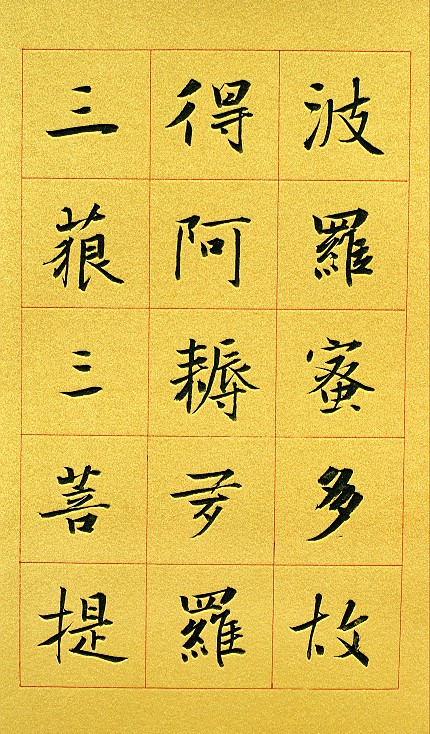 波羅蜜多故
得阿耨多羅
三藐三菩提